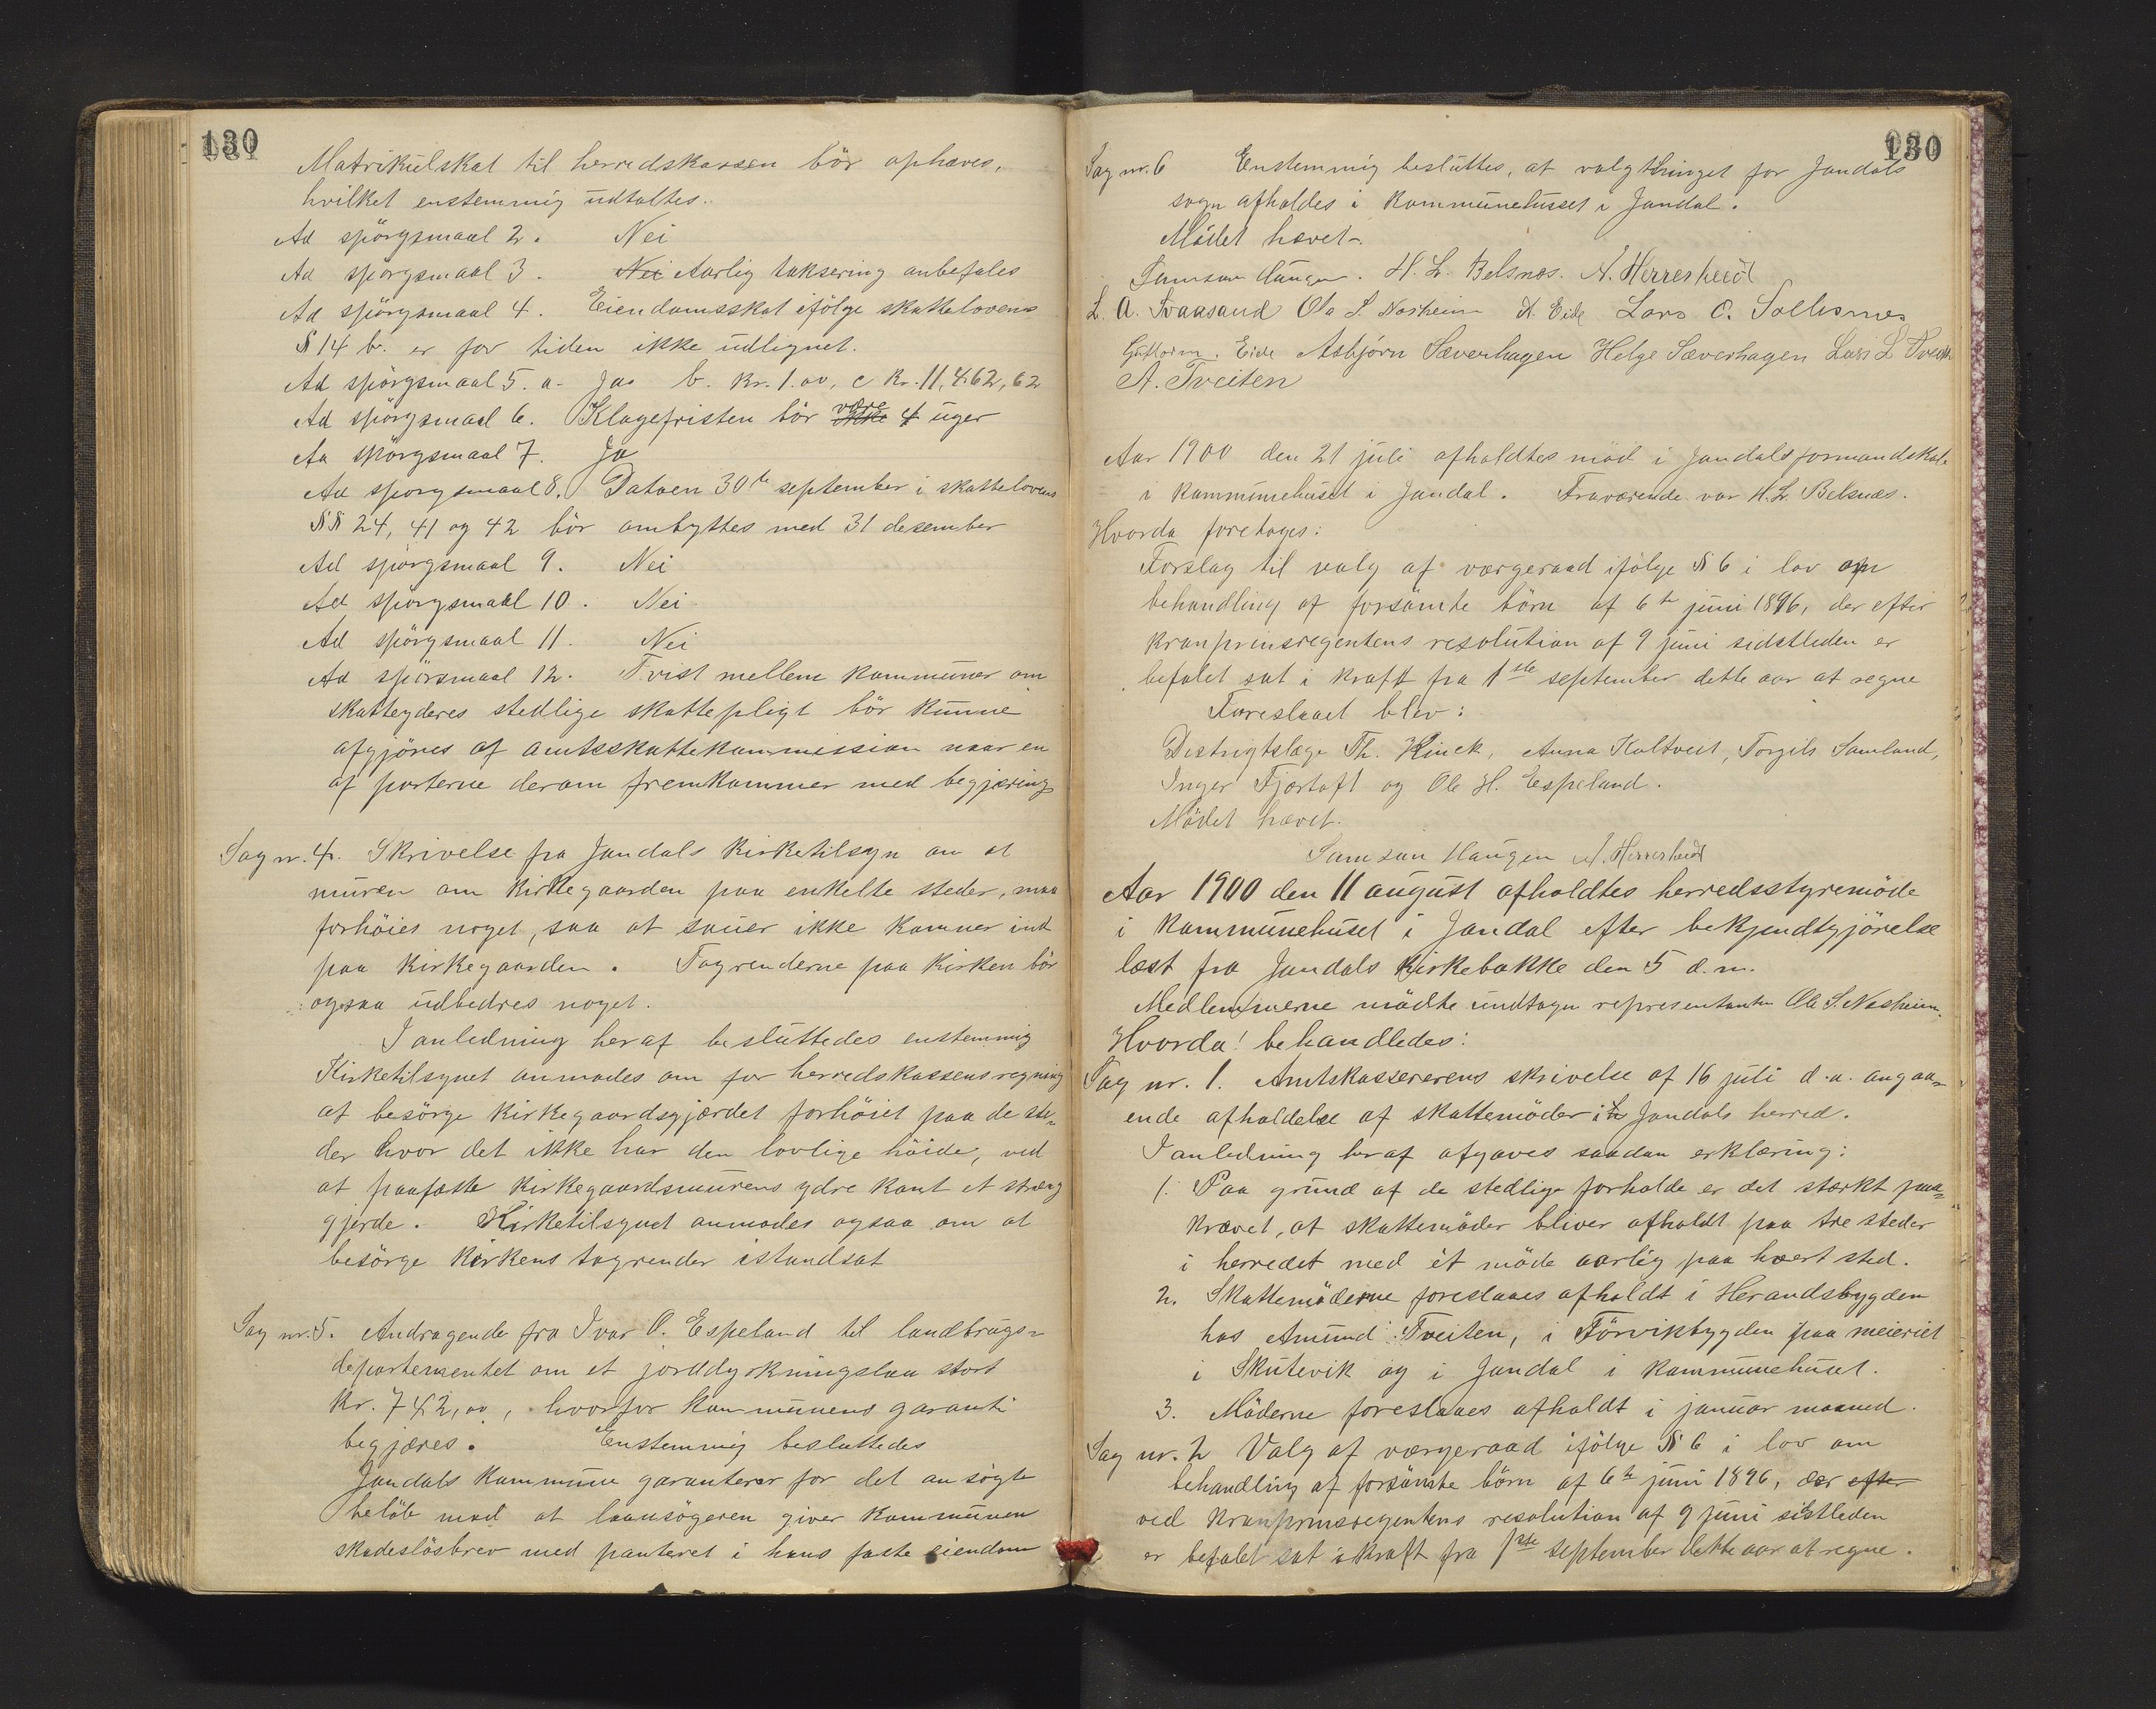 130
Matrikulskat til herredskassen bör ophæves,
hvilket enstemmig udtaltes.
Ad spörgsmaal 2. Nei
Ad spörgsmaal 3. Nei Aarlig taksering anbefales
Ad spörgsmaal 4. Eiendomsskat ifölge skattelovens
§ 14 b. er for tiden ikke udlignet.
Ad spörgsmaal 5. a. Ja b. Kr. 1.00, c Kr. 11,462,62
Ad spörgsmaal 6. Klagefristen bör ikke være 4 uger
Ad spörgsmaal 7. Ja
Ad spörgsmaal 8. Datoen 30te september i skattelovens
§§ 24, 41 og 42 bör ombyttes med 31 desember
Ad spörgsmaal 9. Nei
Ad spörgsmaal 10. Nei
Ad spörgsmaal 11. Nei
Ad spörsmaal 12. Tvist mellem kommuner om
skatteyderes stedlige skattepligt bör kunne
afgjöres af amtsskattekommission naar en
af parterne derom fremkommer med begjæring
Sag nr. 4. Skrivelse fra Jondals kirketilsyn om at
muren om kirkegaarden paa enkelte steder, maa
forhöies noget, saa at sauer ikke kommer ind
paa kirkegaarden. Tagrenderne paa kirken bör
ogsaa udbedres noget.
I anledning heraf besluttedes enstemmig
Kirketilsynet anmodes om for herredskassens regning
at besörge kirkegaardsgjærdet forhöiet paa de ste-
der hvor det ikke har den lovlige höide, ved
at paafæste kirkegaardsmurens ydre kant et stræng
gjerde. Kirketilsynet anmodes ogsaa om at
besörge kirkens tagrender istandsat
Sag nr. 5. Andragende fra Ivar O. Espeland til landbrugs-
departementet om et jorddyrkningslaan stort
Kr. 742,00, hvorfor kommunens garanti
begjæres. Enstemmig besluttedes
Jondals kommune garanterer for det ansögte
belöb mod at laansögeren giver kommunen
skadeslösbrev med panteret i hans faste eiendom
130
Sag nr. 6 Enstemmig besluttes, at valgthinget for Jondals
sogn afholdes i kommunehusset i Jondal.
Mödet hævet.
Samson Haugen. H. L. Belsnes. N. Herresheid
L. A. Svaasand Ola S. Næsheim N. Eide Lars O. Sollesnes
Guttorm. Eide Asbjørn Sæverhagen Helge Sæverhagen Lars L
A. Tveiten
Aar 1900 den 21 juli afholdtes möd i Jondals formandskab
i kommunehuset i Jondal. Fraværende var H. L. Belsnæs.
Hvorda foretages:
Forslag til valg af værgeraad ifölge § 6 i lov om
behandling af forsömte börn af 6te juni 1896, der efter
kronprinsregentens resolution af 9 juni sidstleden er
befalet sat i kraft fra 1ste september dette aar at regne
Foreslaaet blev:
Distrigtslæge Th. Kinck, Anna Koltveit, Torgils Samland,
Inger Fjærtoft og Ole H. Espeland.
Mödet hævet.
Samson Haugen N. Herresheid
Aar 1900 den 11 august afholdtes herredsstyremöde
i kommunehuset i Jondal efter bekjendtgjörelse
læst fra Jondals kirkebakke den 5 d. m.
Medlemmerne mödte undtagen representanten Ole S. Næsheim.
Hvorda! behandledes:
Sag nr. 1. Amtskassererens skrivelse af 16 juli d. a. angaa-
ende afholdelse af skattemöder i Jondals herred.
I anledning heraf afgaves saadan erklæring:
1. Paa grund af de stedlige forholde er det stærkt paa-
krævet, at skattemöder bliver afholdt paa tre steder
i herredet med et möde aarlig paa hvert sted.
2. Skattemöderne foreslaaes afholdt i Herandsbygden
hos Amund Tveiten, i Törvikbygden paa meieriet
i Skutevik og i Jondal i kommunehuset.
3. Möderne foreslaaes afholdt i januar maaned.
Sag nr. 2 Valg af værgeraad ifölge § 6 i lov om
behandling af forsömte börn af 6te juni 1896, der efter
ved kronprinsregentens resolution af 9 juni sistleden
er befalet sat i kraft fra 1ste september dette aar at regne.